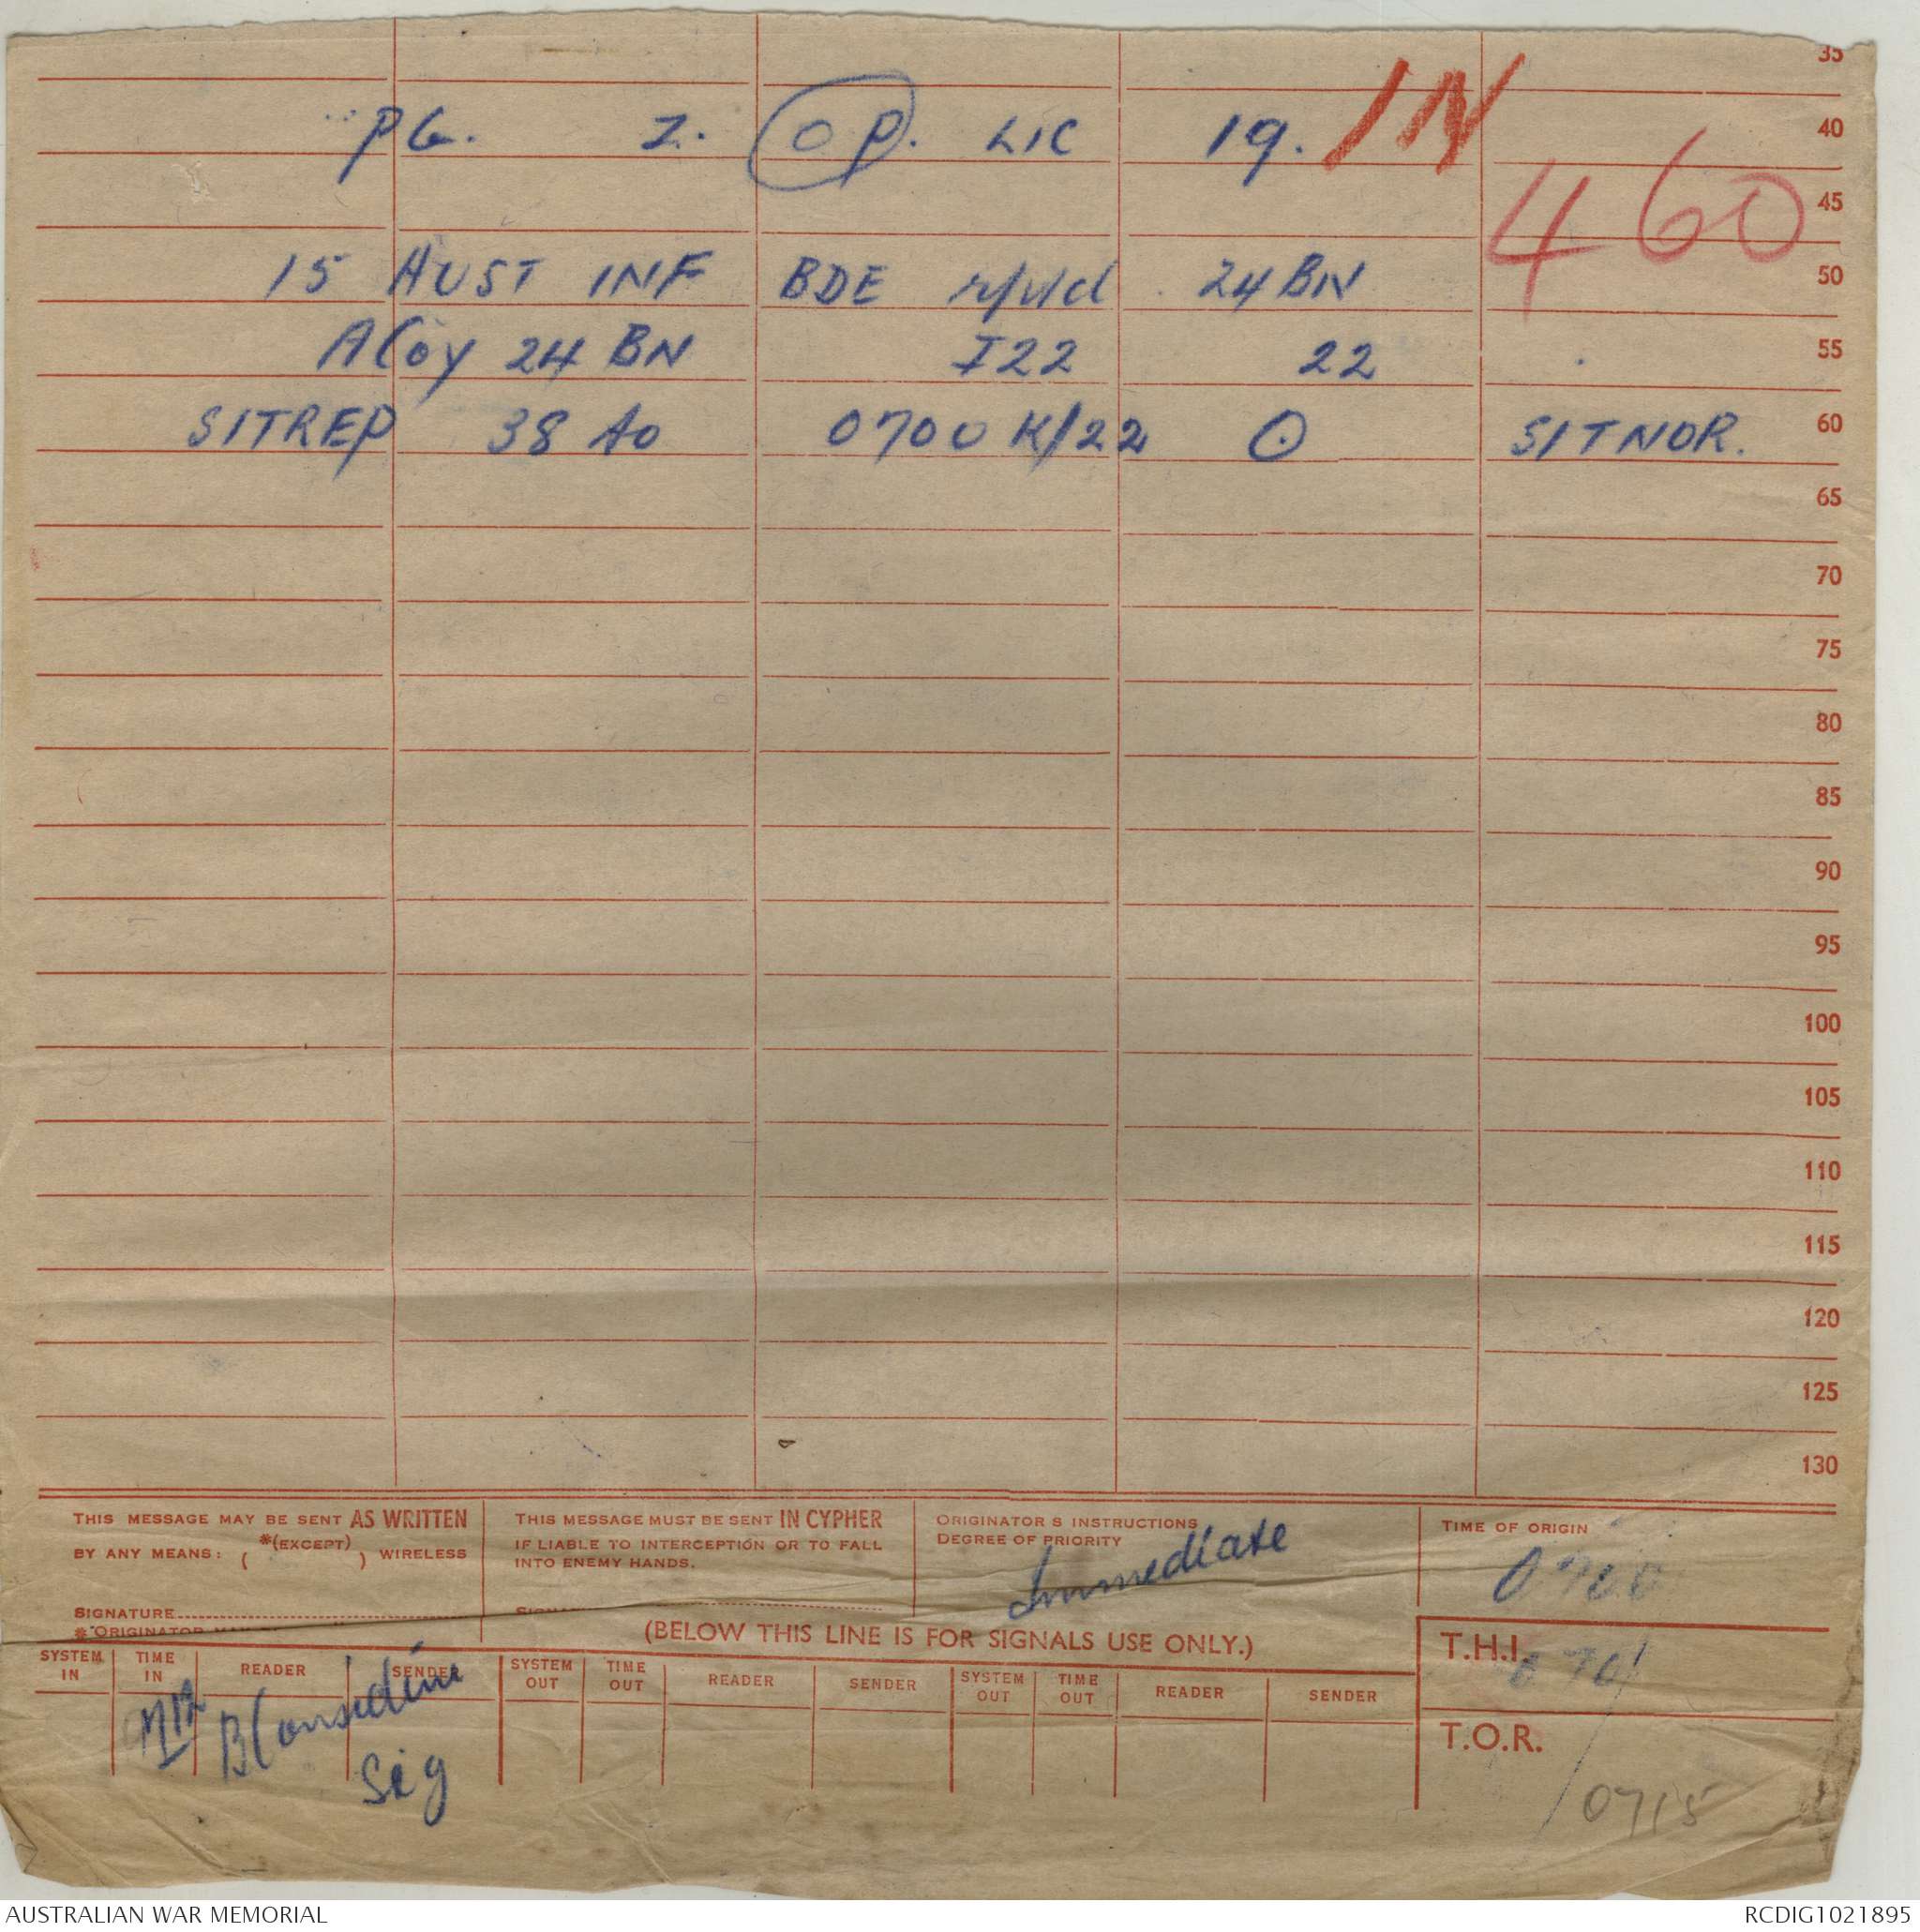 35
PG. Z. OP. LIC 19. IN
40
460
45
15 AUST INF BDE 24 BN
50
A Coy 24 BN I22 22
55
SITREP 38 AO 0700 K/22 O SITNOR.
60
65
70
75
80
85
90
95
100
105
110
115
120
125
130
THIS MESSAGE MAY BE SENT AS WRITTEN
BY ANY MEANS: ( *(EXCEPT) ) WIRELESS
SIGNATURE
*ORIGINATOR
THIS MESSAGE MUST BE SENT IN CYPHER
IF LIABLE TO INTERCEPTION OR TO FALL
INTO ENEMY HANDS.
ORIGINATOR S INSTRUCTIONS
DEGREE OF PRIORITY
Immediate
TIME OF ORIGIN
0700
(BELOW THIS LINE IS FOR SIGNALS USE ONLY.)
SYSTEM IN TIME IN READER SENDER SYSTEM OUT TIME OUT READER SENDER SYSTEM OUT TIME OUT READER SENDER
T.H.I. 0701
B Considine
Sig
T.O.R.
0715
AUSTRALIAN WAR MEMORIAL RCDIG1021895